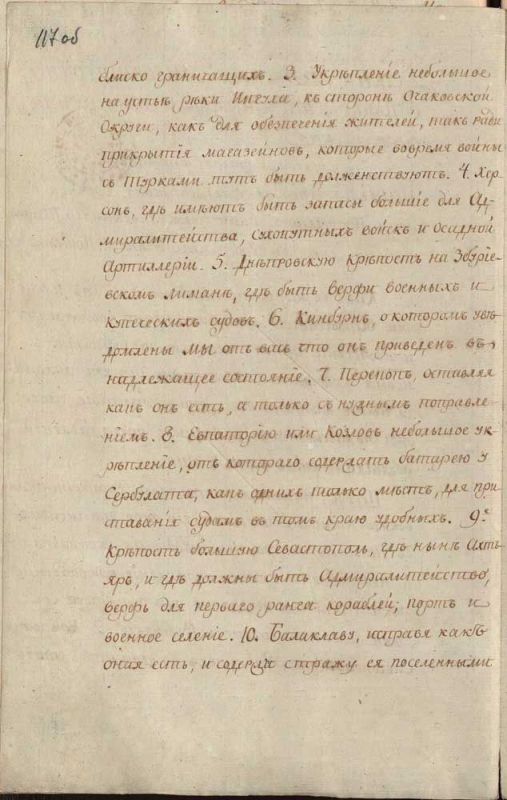 117 об
блиско граничащихъ. 3. Укрѣпленіе небольшое
на устьѣ рѣки Ингула, къ сторонѣ Очаковской
Округи, какъ для обезпеченія жителей, такъ ради
прикрытія магазейновъ, которые вовремя войны
съ Турками тутъ быть долженствуютъ. 4. Хер-
сонъ, гдѣ имѣютъ быть запасы большіе для Ад-
миралитейства, сухопутныхъ войскъ и осадной
Артиллеріи. 5. Днѣпровскую Крѣпость на Збуріе-
вскомъ Лиманѣ, гдѣ быть верфи военныхъ и
купеческихъ судовъ. 6. Кинбурнъ, о которомъ увѣ-
домлены мы отъ васъ что онъ приведенъ въ
надлежащее состояніе. 7. Перекопъ, оставляя
какъ онъ есть, а только съ нужнымъ поправле-
ніемъ. 8. Евпаторію или Козловъ небольшое ук-
рѣпленіе, отъ котораго содержать батарею у
Сербулата, какъ однихъ только мѣстъ, для при-
ставанія судамъ въ томъ краю удобныхъ. 9е
Крѣпость большую Севастополь, гдѣ нынѣ Ахть-
яръ, и гдѣ должны быть Адмиралитейство,
верфь для перваго ранга кораблей, портъ и
военное селеніе. 10. Балаклаву, исправя какъ
оная есть, и содержа стражу ея поселенными